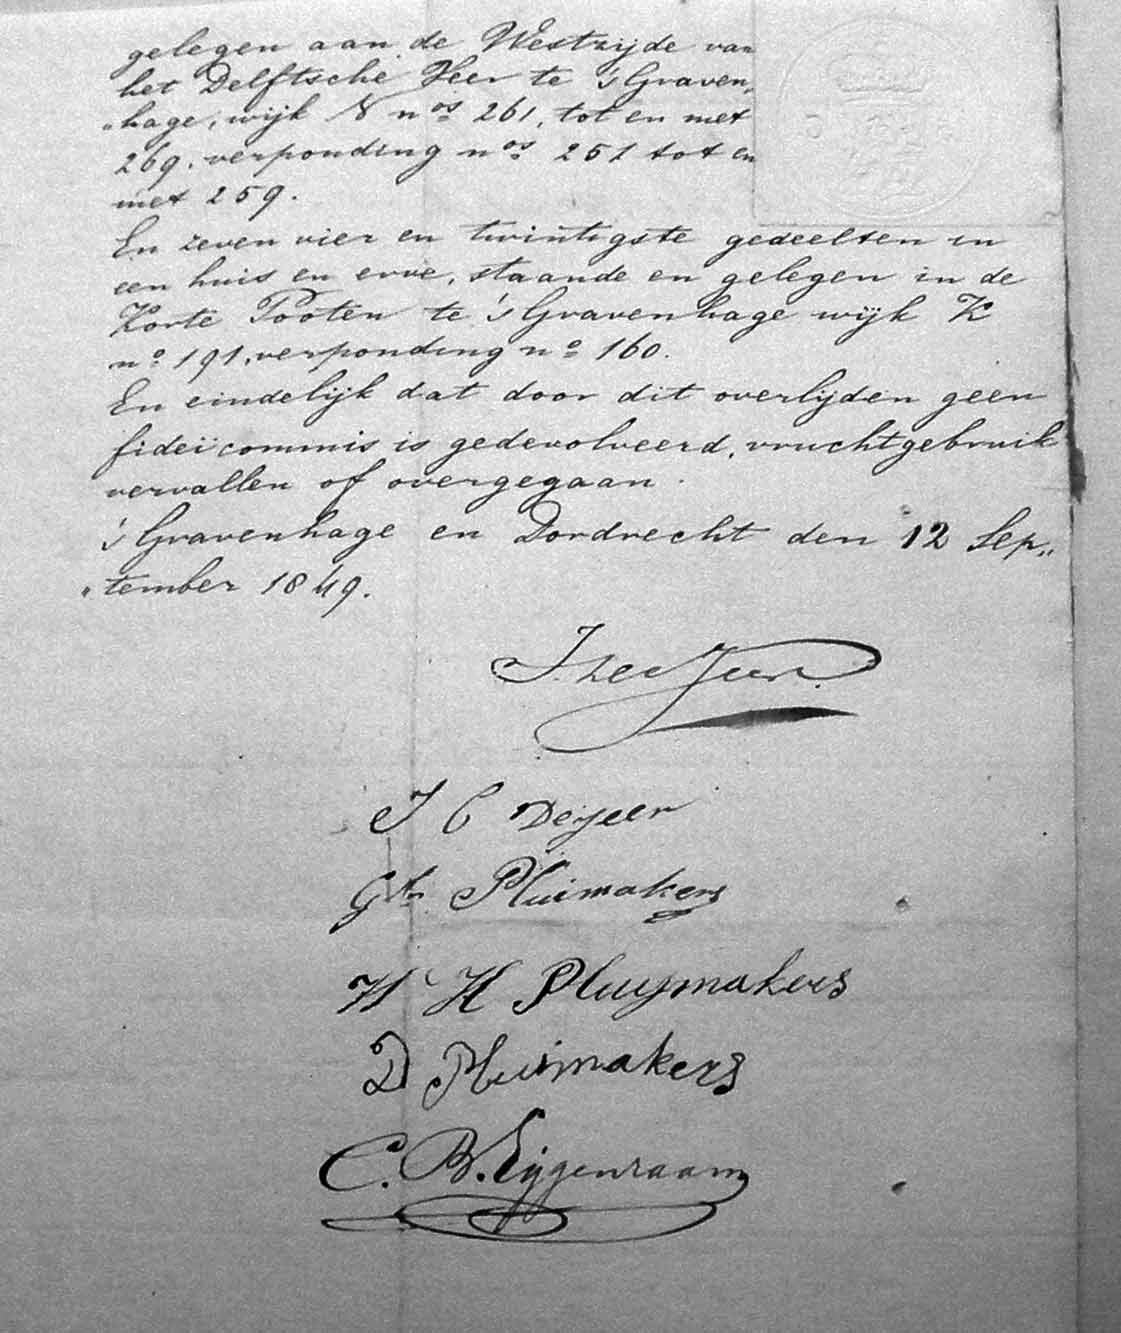 gelegen aan de Westzijde van
het Delftsche Veer te 's Graven„
„hage, wijk V nos 261, tot en met
269. verponding nos 251 tot en
met 259.
En zeven vier en twintigste gedeelten in
een huis en erve, staande en gelegen in de
Korte Pooten te 's Gravenhage wijk K
no 191, verponding no 160.
En eindelijk dat door dit overlijden geen
fideïcommis is gedevolveerd, vruchtgebruik
vervallen of overgegaan.
's Gravenhage en Dordrecht den 12 Sep„
„tember 1849.
J C Degeer
Pluimakers
W H Pluymakers
D Pluimakers
C. B. Eijgenraam